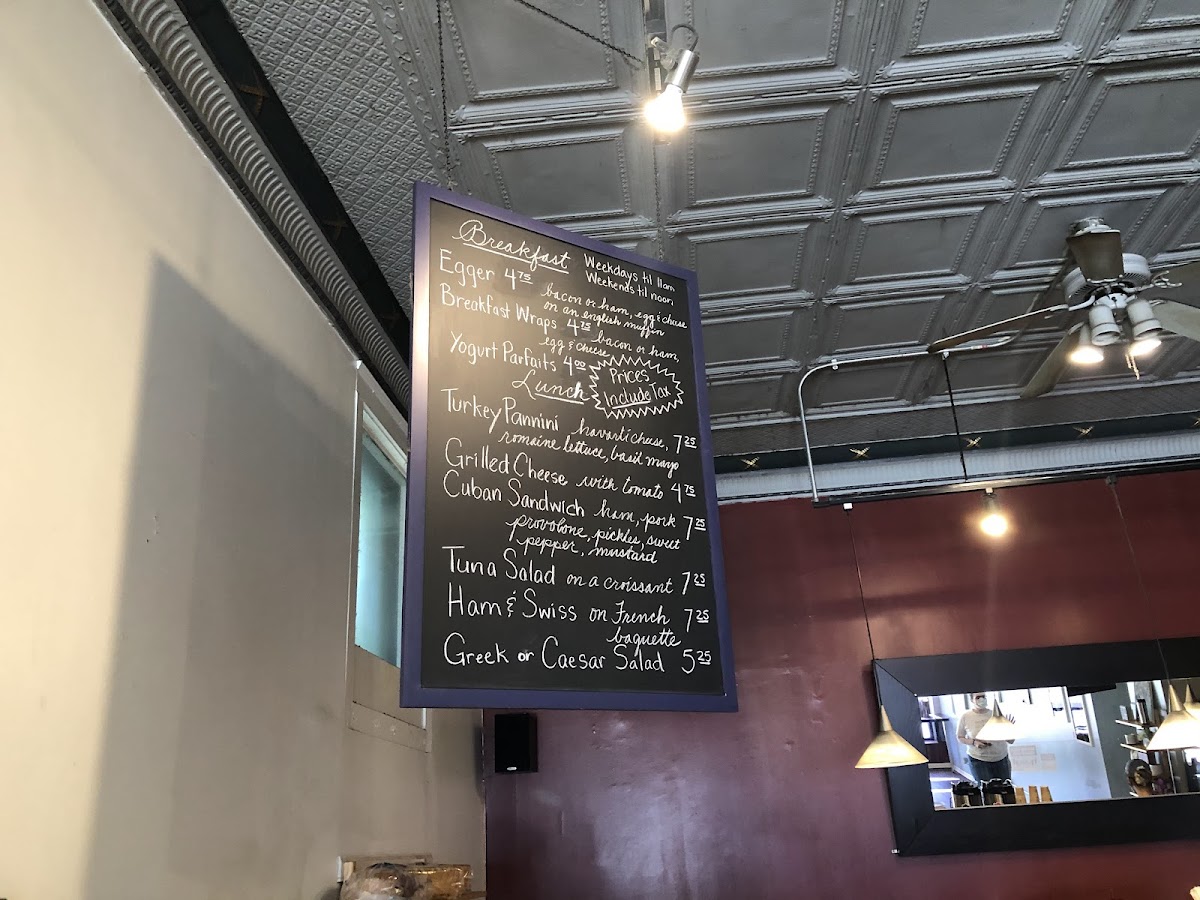 Breakfast Weekdays til 11am
Weekends til noon
Egger 4 75 bacon or ham, egg & cheese
on an english muffin
Breakfast Wraps 4 75 bacon or ham,
egg & cheese
Yogurt Parfaits 4 00
Prices
Include Tax
Lunch
Turkey Pannini havarti cheese, 7 25
romaine lettuce, basil mayo
Grilled Cheese with tomato 4 75
Cuban Sandwich ham, pork 7 25
provolone, pickles, sweet
pepper, mustard
Tuna Salad on a croissant 7 25
Ham & Swiss on French 7 25
baguette
Greek or Caesar Salad 5 25